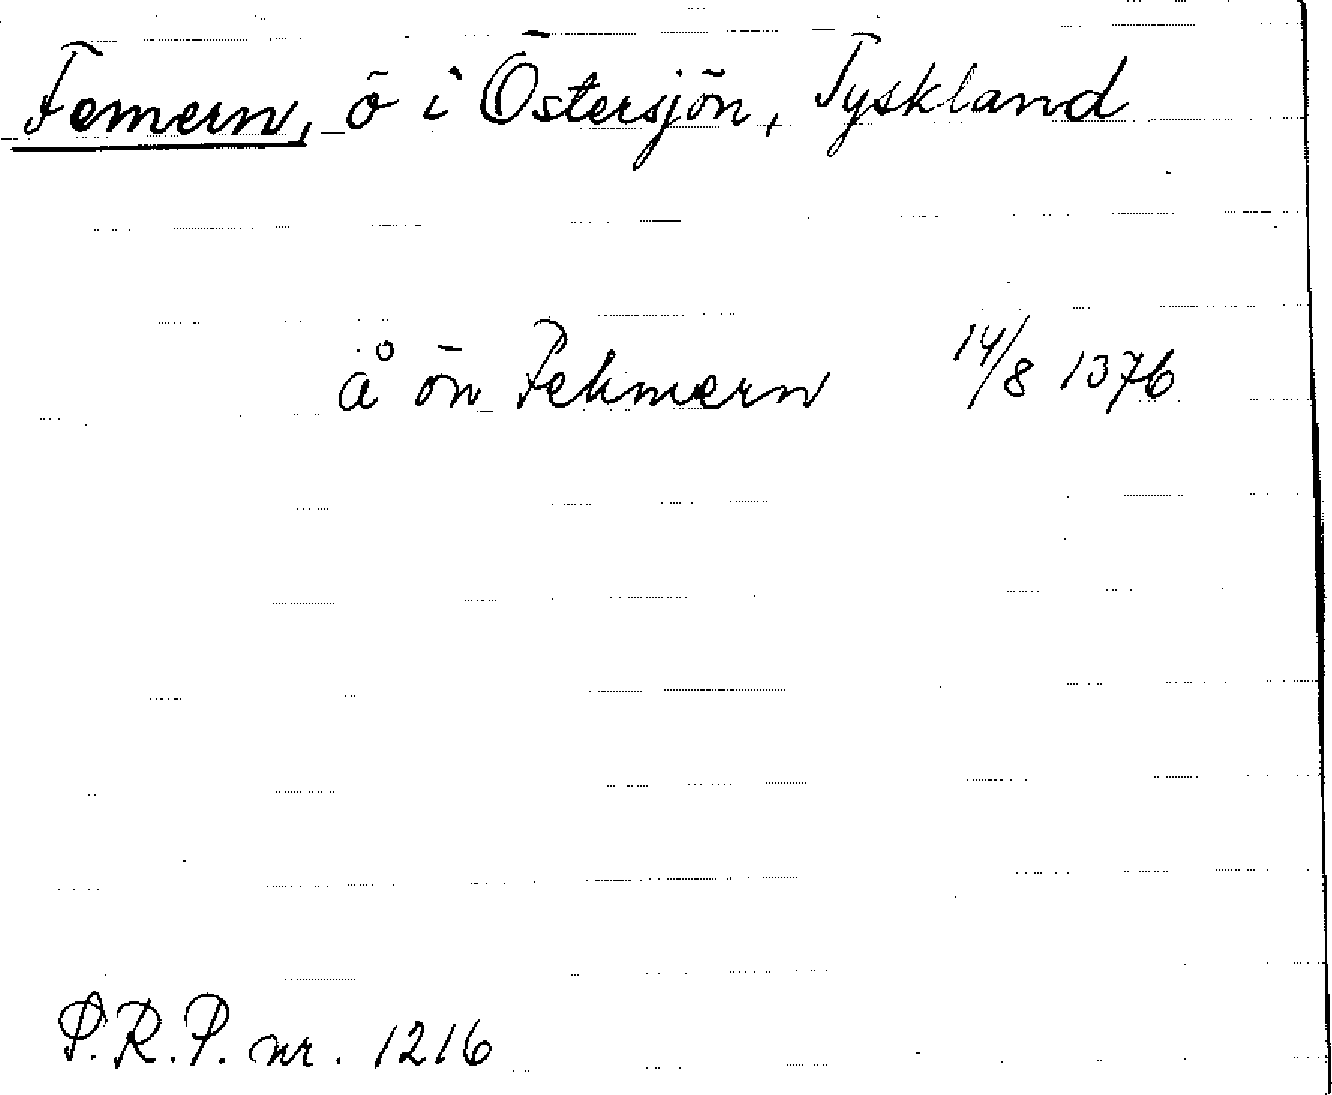 Femern, ö i Östersjön, Tyskland
å ön Fehmern 14/8 1376
P.R.P. nr. 1216